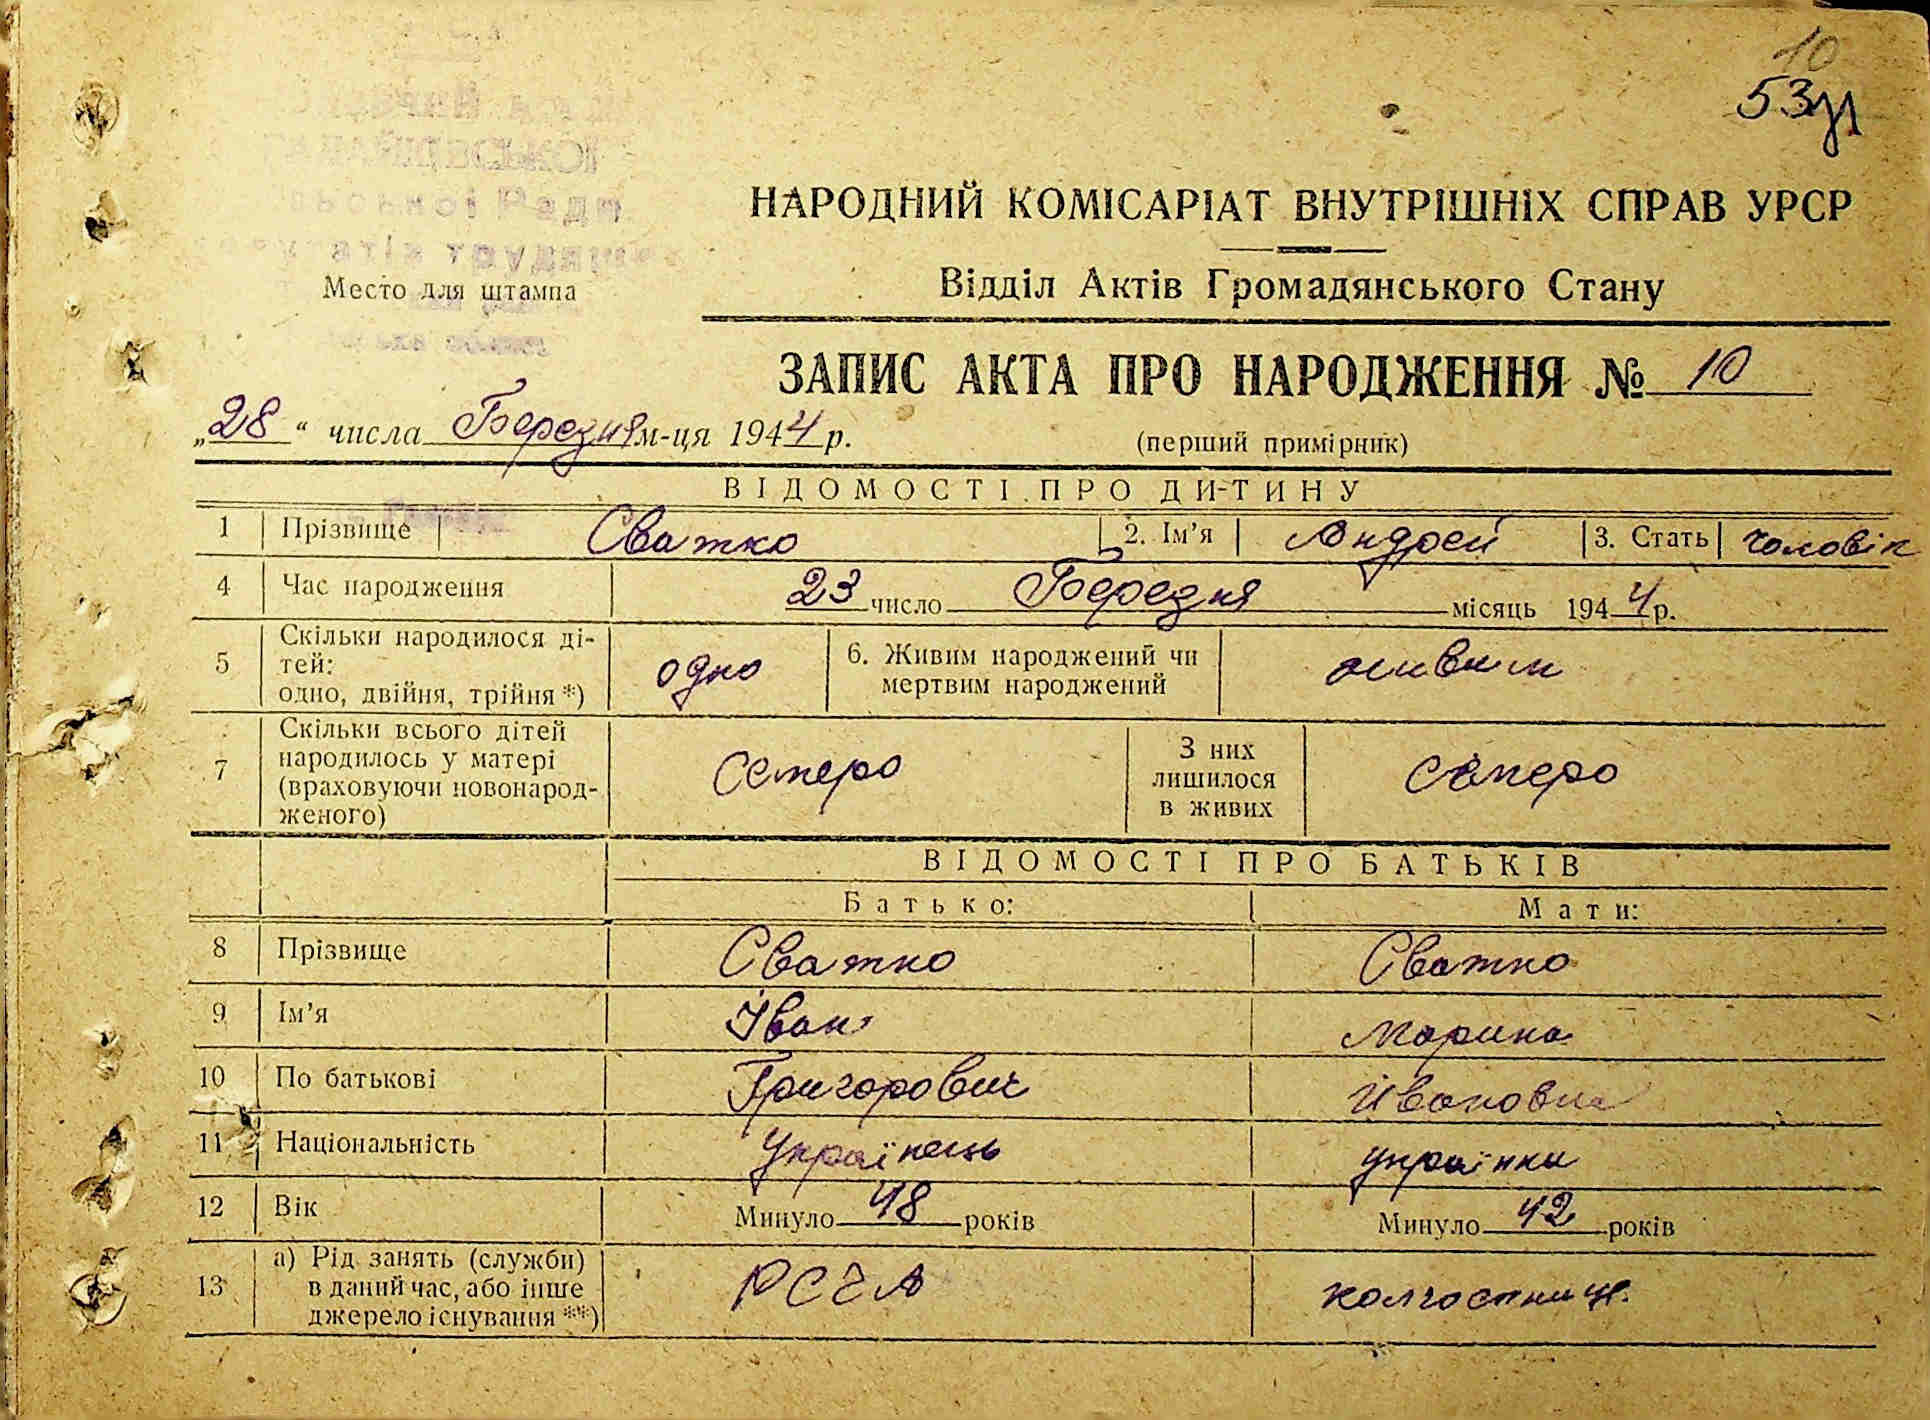 10
53зл
НАРОДНИЙ КОМІСАРІАТ ВНУТРІШНІХ СПРАВ УРСР
Место для штампа
Відділ Актів Громадянського Стану
ЗАПИС АКТА ПРО НАРОДЖЕННЯ № 10
„28“ числа Березня м-ця 1944 р.
(перший примірник)
ВІДОМОСТІ ПРО ДИТИНУ
1 Прізвище Сватко 2. Ім'я Андрей 3. Стать чоловік
4 Час народження 23 число Березня місяць 1944 р.
5 Скільки народилося ді-
тей:
одно, двійня, трійня *) одно 6. Живим народжений чи
мертвим народжений живим
7 Скільки всього дітей
народилось у матері
(враховуючи новонарод-
женого) Семеро З них
лишилося
в живих семеро
ВІДОМОСТІ ПРО БАТЬКІВ
Батько: Мати:
8 Прізвище Сватко Сватко
9 Ім'я Іван Марина
10 По батькові Григорович Ивановна
11 Національність українець українка
12 Вік Минуло 48 років Минуло 42 років
13 а) Рід занять (служби)
в даний час, або інше
джерело існування **) РСЧА колгоспниця